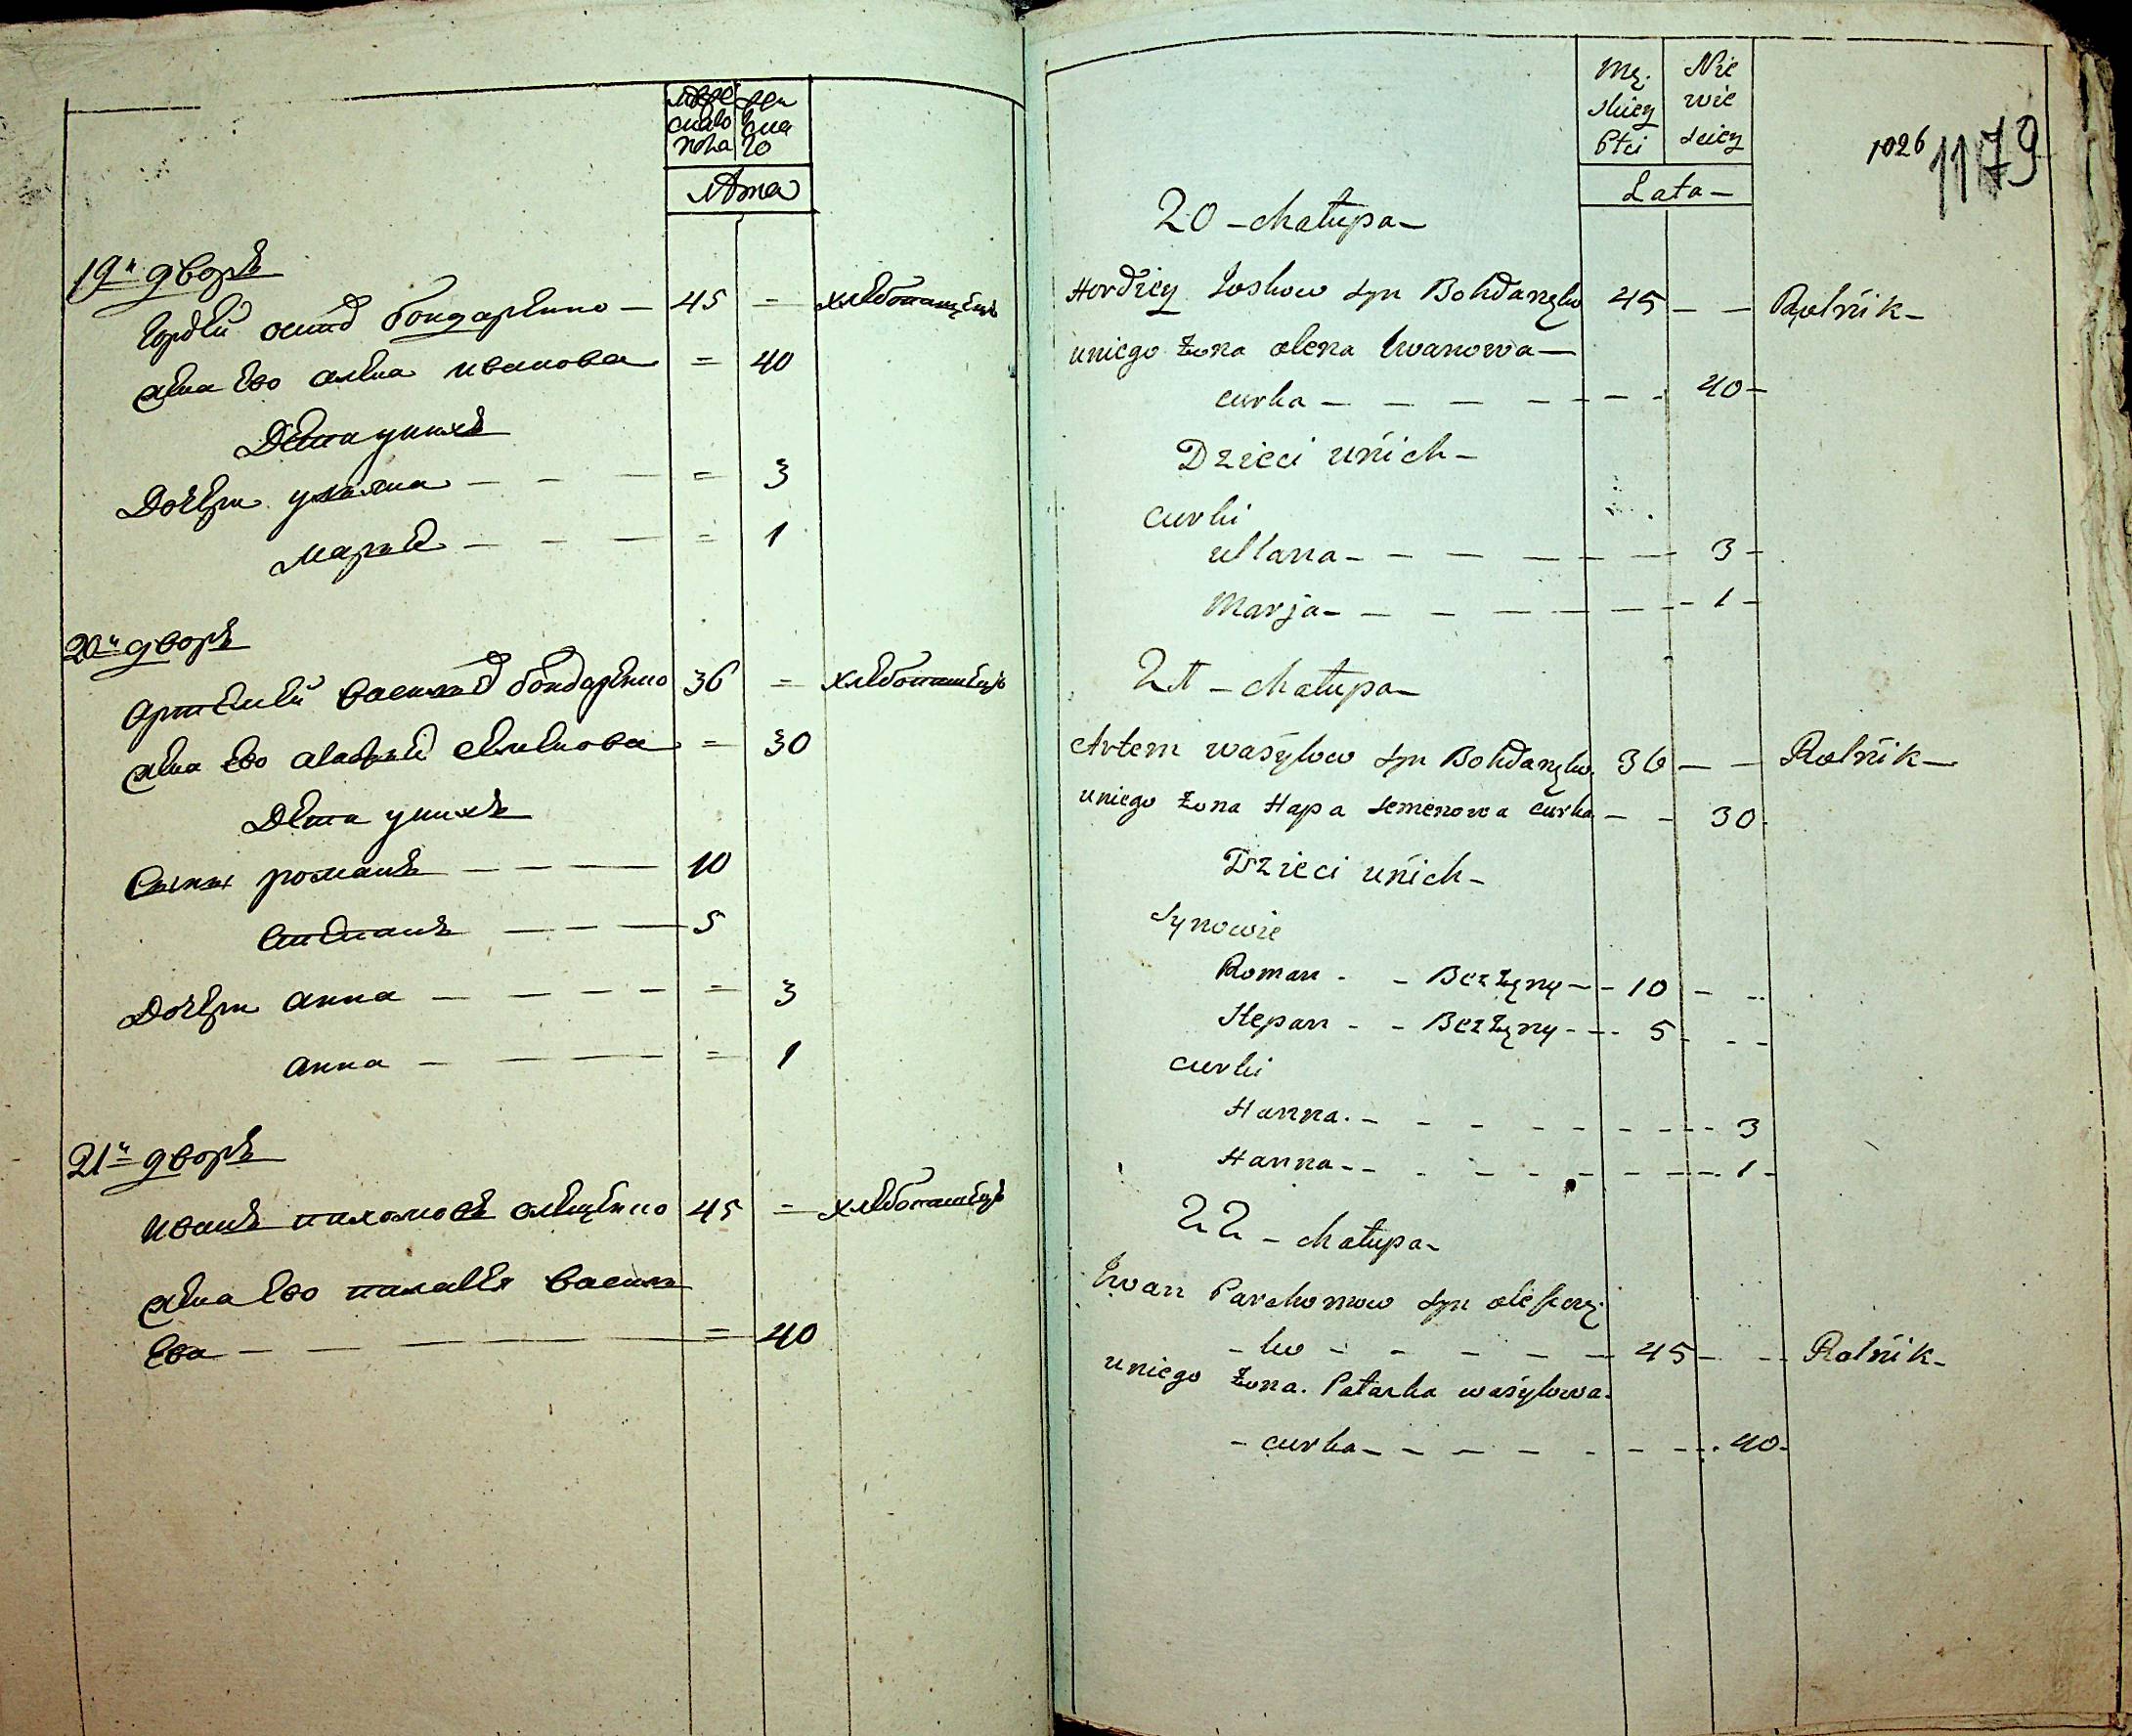 мужескаго пола
женскаго
Лѣта
19й дворъ
Гордѣй осипов бондаренко — 45 = хлѣбопашецъ
жена ево алена иванова = 40
Дѣти у нихъ
Дочери уляна — — — = 3
марья — — — = 1
20й дворъ
артемей васильев бондаренко 36 = хлѣбопашецъ
жена ево агафья семенова = 30
Дѣти у нихъ
Сыны романъ — — — 10
степанъ — — — 5
Дочери анна — — — — = 3
анна — — — = 1
21й дворъ
иванъ пахомовъ олещенко 45 = хлѣбопашецъ
жена ево палагея василь
ева — — — = 40
Mę. skiey Płci
Nie wie sciey
1026 1179
Lata —
20 — chałupa —
Hordiey Joskow syn Bohdanęko 45 — — Rolnik —
uniego żona olena Iwanowa —
curka — — — — — — 40 —
Dzieci unich —
curki
ullana — — — — — — 3 —
Marja — — — — — — 1 —
21 — chałupa —
Artem wasylow syn Bohdanęko 36 — — Rolnik —
uniego żona Hapa semenowa curka — — 30
Dzieci unich —
synowie
Roman - - Bezżęny - - 10 - -
Stepan - - Bezżęny - - - 5 - - -
curki
Hanna - - - - - - - - 3
Hanna - - - - - - - - 1 -
22 — chałupa —
Iwan Parchomow syn
- ko - - - - - 45 - - Rolnik -
uniego żona. Patarka wasylowa.
- curka - - - - - - - - 40 -